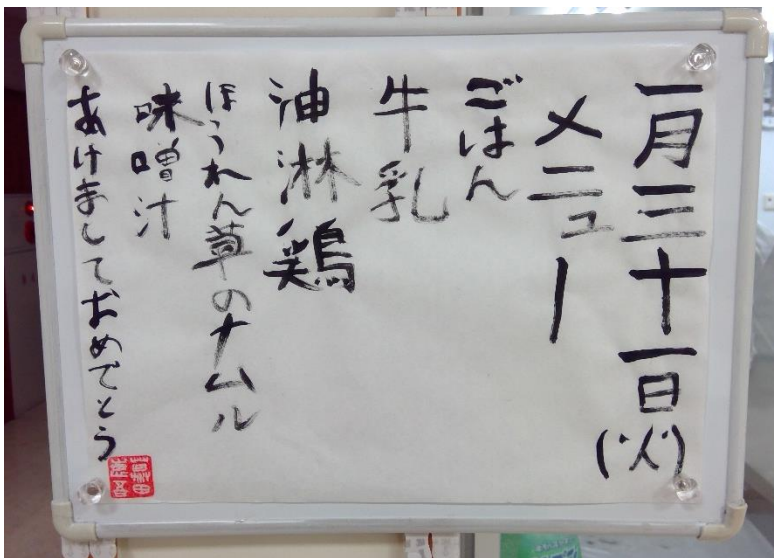 一月三十一日(火)
メニュー
ごはん
牛乳
油淋鶏
ほうれん草のナムル
味噌汁
あけましておめでとう